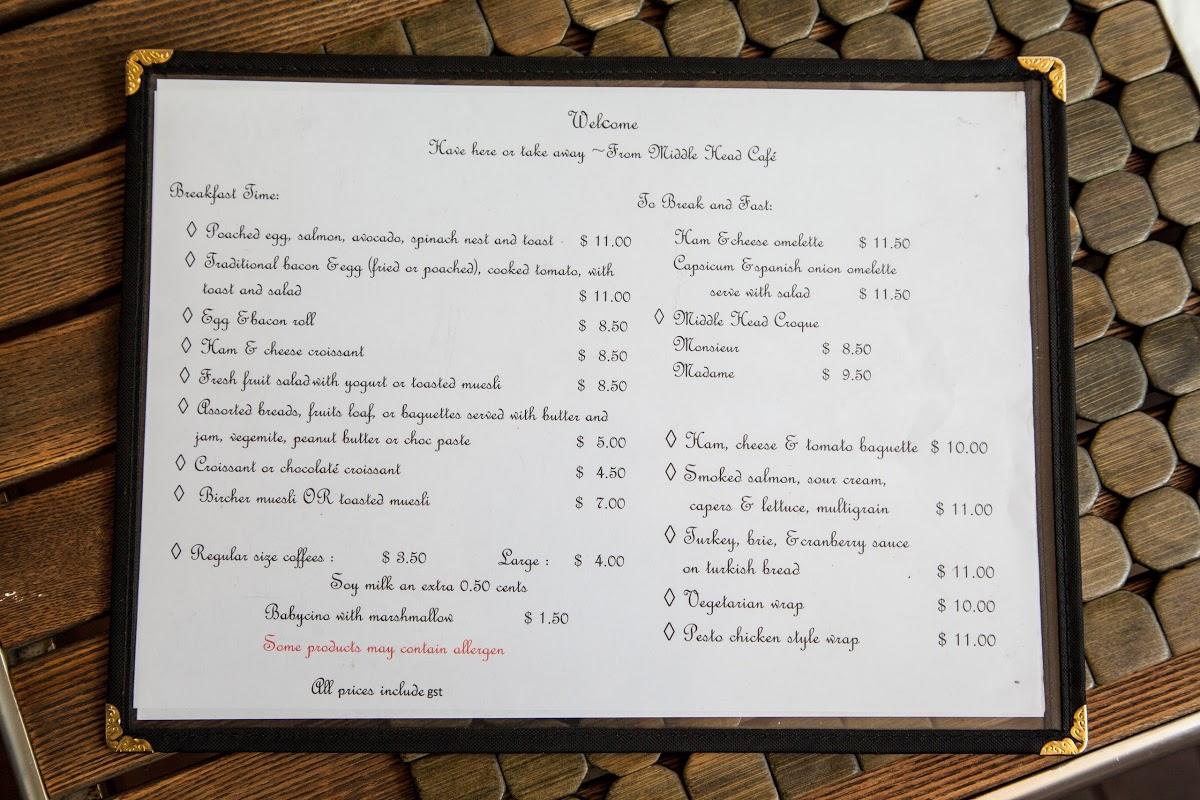 Welcome
Have here or take away ~From Middle Head Café
Breakfast Time:
◊ Poached egg, salmon, avocado, spinach nest and toast $ 11.00
◊ Traditional bacon &egg (fried or poached), cooked tomato, with
toast and salad $ 11.00
◊ Egg &bacon roll $ 8.50
◊ Ham & cheese croissant $ 8.50
◊ Fresh fruit salad with yogurt or toasted muesli $ 8.50
◊ Assorted breads, fruits loaf, or baguettes served with butter and
jam, vegemite, peanut butter or choc paste $ 5.00
◊ Croissant or chocolaté croissant $ 4.50
◊ Bircher muesli OR toasted muesli $ 7.00
◊ Regular size coffees : $ 3.50 Large : $ 4.00
Soy milk an extra 0.50 cents
Babycino with marshmallow $ 1.50
Some products may contain allergen
All prices include gst
To Break and Fast:
Ham &cheese omelette $ 11.50
Capsicum &spanish onion omelette
serve with salad $ 11.50
◊ Middle Head Croque
Monsieur $ 8.50
Madame $ 9.50
◊ Ham, cheese & tomato baguette $ 10.00
◊ Smoked salmon, sour cream,
capers & lettuce, multigrain $ 11.00
◊ Turkey, brie, &cranberry sauce
on turkish bread $ 11.00
◊ Vegetarian wrap $ 10.00
◊ Pesto chicken style wrap $ 11.00